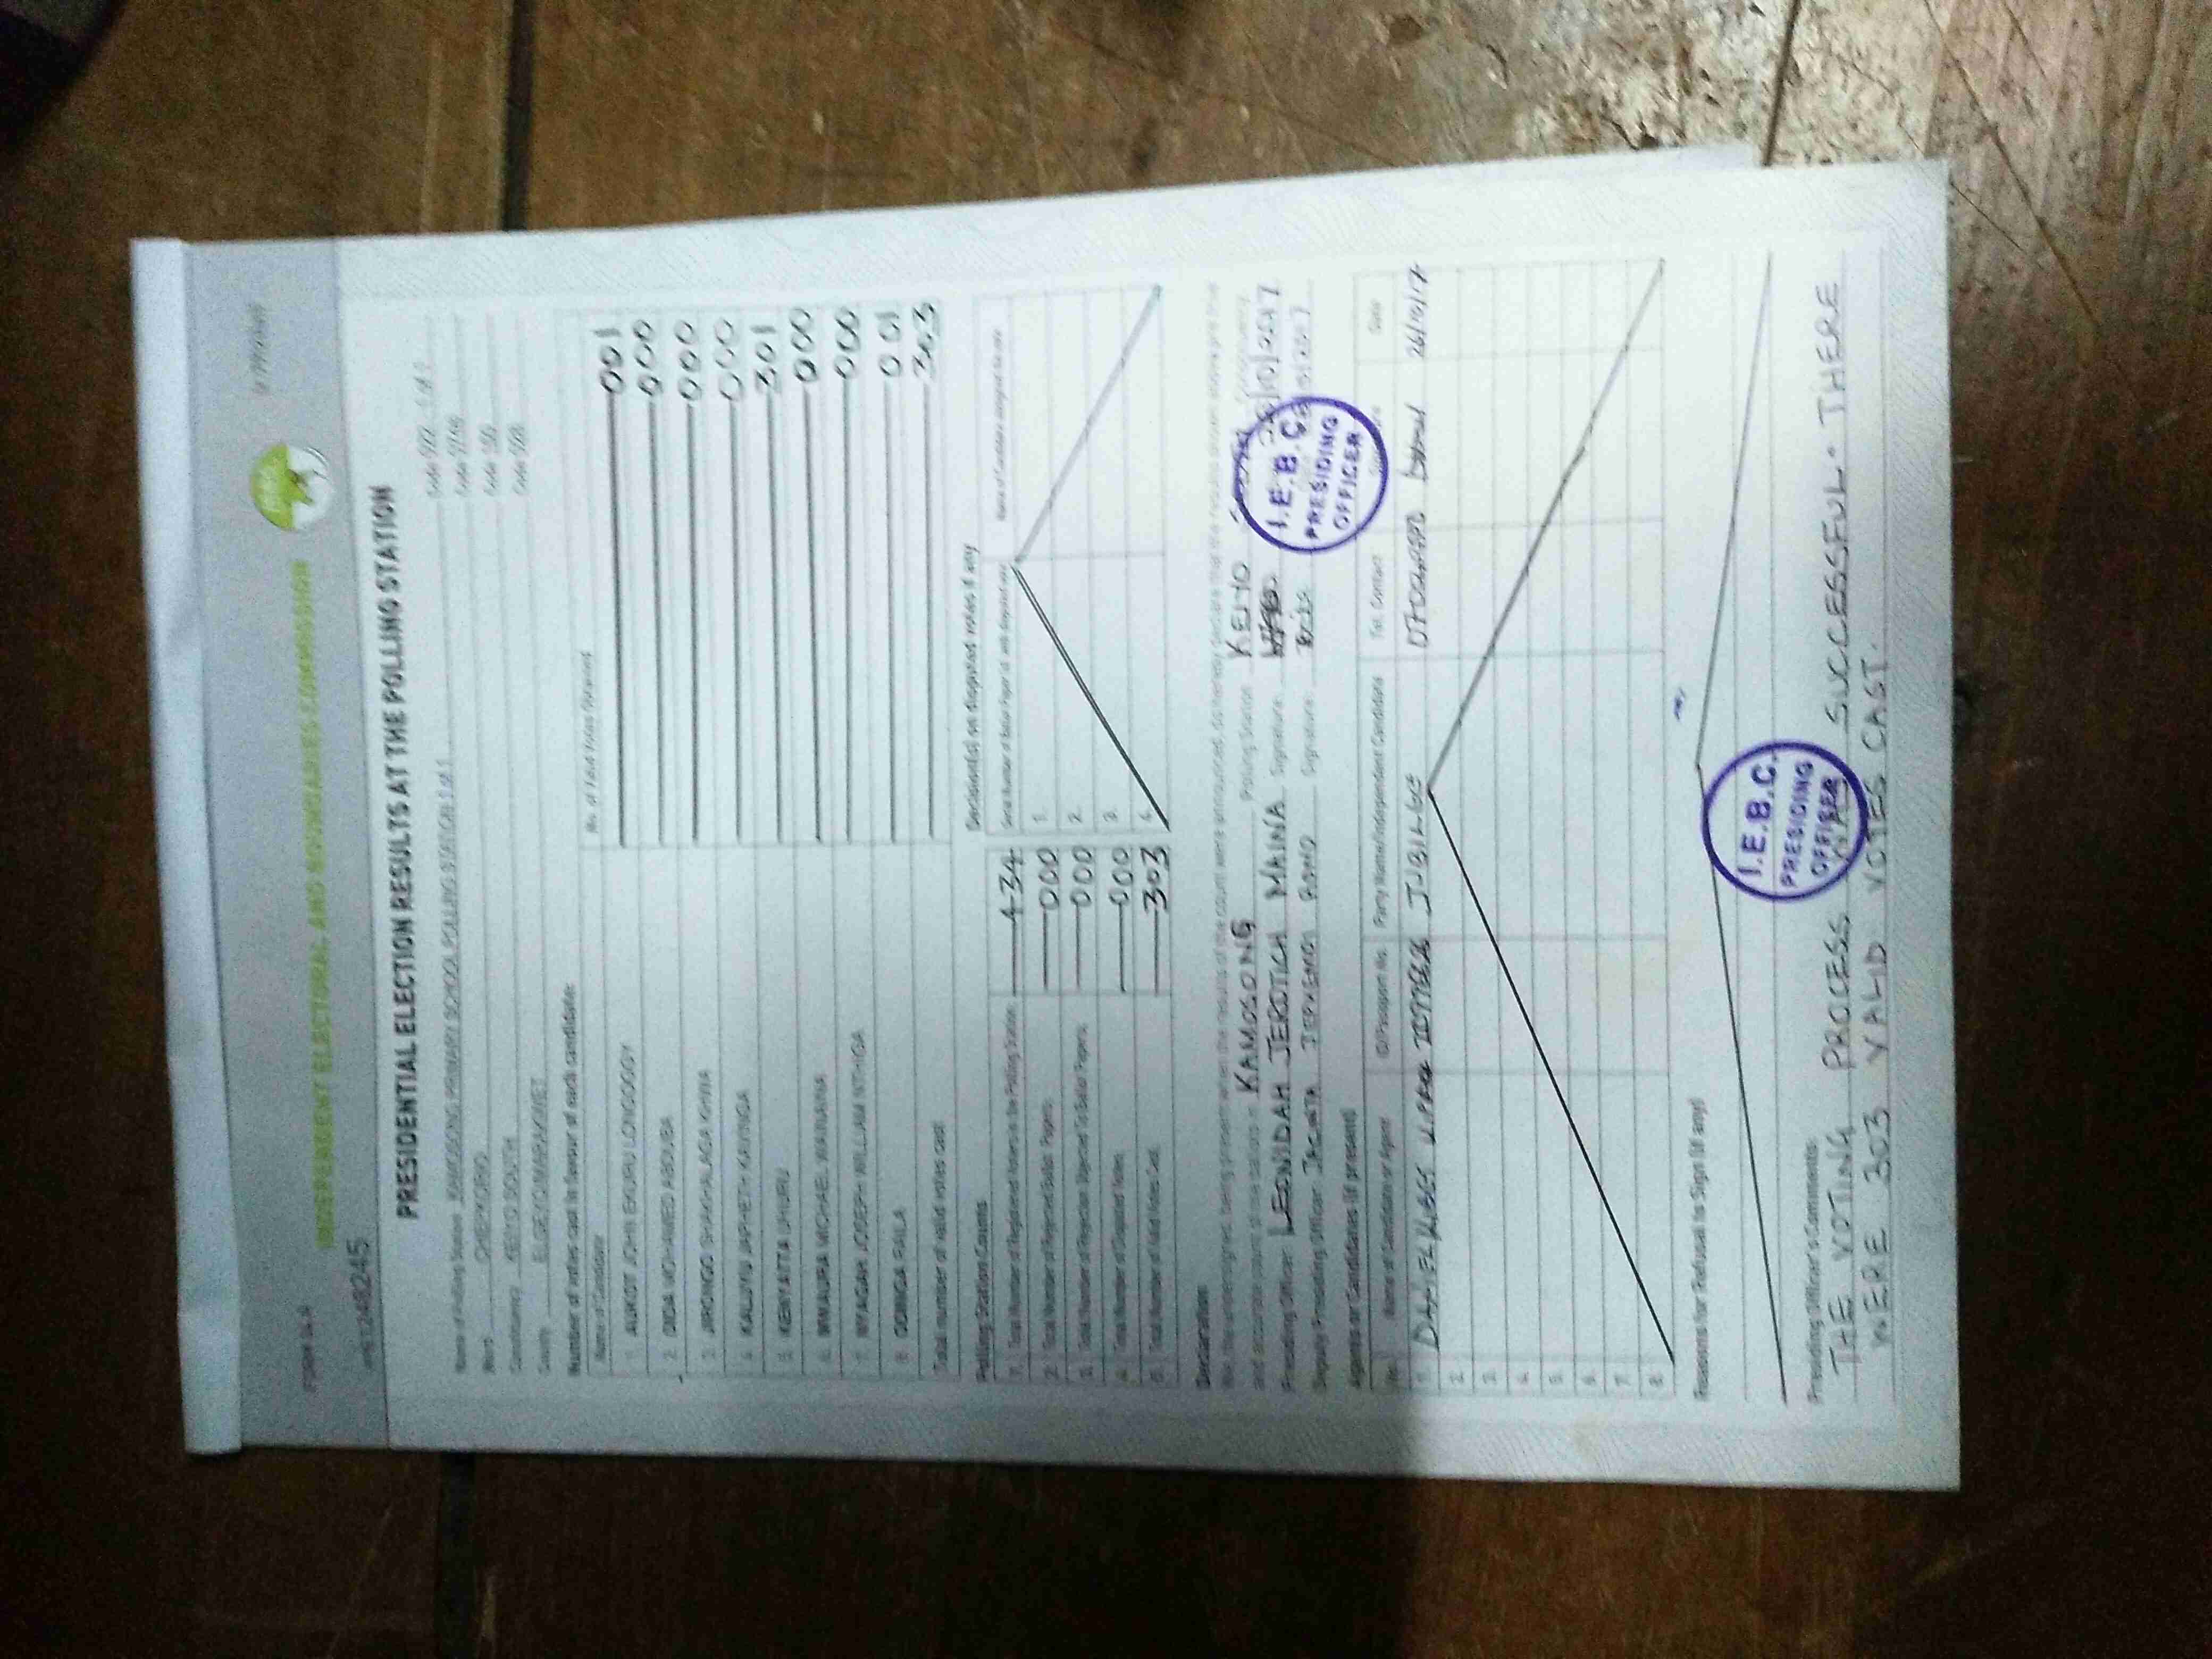 FORM 34A
INDEPENDENT ELECTORAL AND BOUNDARIES COMMISSION
PRESIDENTIAL ELECTION RESULTS AT THE POLLING STATION
Name of Polling Station KAMOSONG PRIMARY SCHOOL POLLING STATION 1 of 1 Code 022 - 1 of 1
Ward CHEPKORIO
Constituency KEIYO SOUTH Code 150
County ELGEYO/MARAKWET Code 028
Number of votes cast in favour of each candidate:
Name of Candidate No. of Valid Votes Obtained
1. AUKOT JOHN EKURU LONGOGGY 001
2. DIDA MOHAMED ABDUBA 000
3. JIRONGO SHAKHALAGA KHWA 000
4. KALUYU JAPHETH KAVINGA 000
5. KENYATTA UHURU 301
6. MWAURA MICHAEL WAINAINA 000
7. NYAGAH JOSEPH WILLIAM NTHIGA 000
8. ODINGA RAILA 001
Total number of valid votes cast 303
Polling Station Counts
1. Total Number of Registered Voters in the Polling Station 434
2. Total Number of Rejected Ballot Papers 000
3. Total Number of Rejection Objected To Ballot Papers 000
4. Total Number of Disputed Votes 000
5. Total Number of Valid Votes Cast 303
Decision(s) on disputed votes if any
Serial Number of Ballot Paper(s) with disputed vote Name of Candidate assigned the vote
1.
2.
3.
4.
Declaration
We, the undersigned, being present when the results of the count were announced, do hereby declare that the results shown above are true
and accurate count of the ballots in KAMOSONG Polling Station KEIYO SOUTH Constituency.
Presiding Officer LEONIDAH JEROTICH MAINA Signature
Deputy Presiding Officer Signature
I.E.B.C.
PRESIDING
OFFICER
Agents or Candidates (if present)
No. Name of Candidate or Agent ID/Passport No. Party Name/Independent Candidate Tel. Contact Signature Date
1. JUBILEE 26/10/17
2.
3.
4.
5.
6.
7.
8.
Reasons for Refusal to Sign (if any)
I.E.B.C.
PRESIDING
OFFICER
Presiding Officer's Comments:
THE VOTING PROCESS WAS SUCCESSFUL. THERE
WERE 303 VALID VOTES CAST.